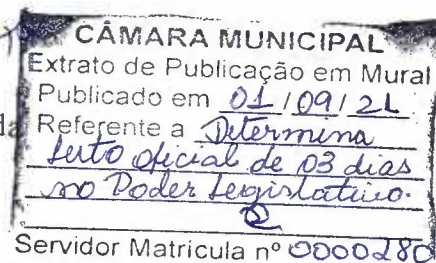 CÂMARA MUNICIPAL
Extrato de Publicação em Mural
Publicado em 01/09/21
Referente a Determina
luto oficial de 03 dias
no Poder Legislativo.
Servidor Matricula nº 0000280